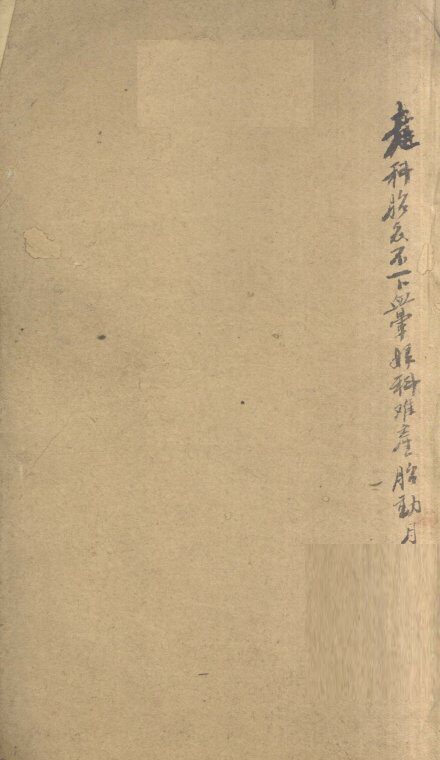 產科胎衣不下血暈婦科难產胎動月